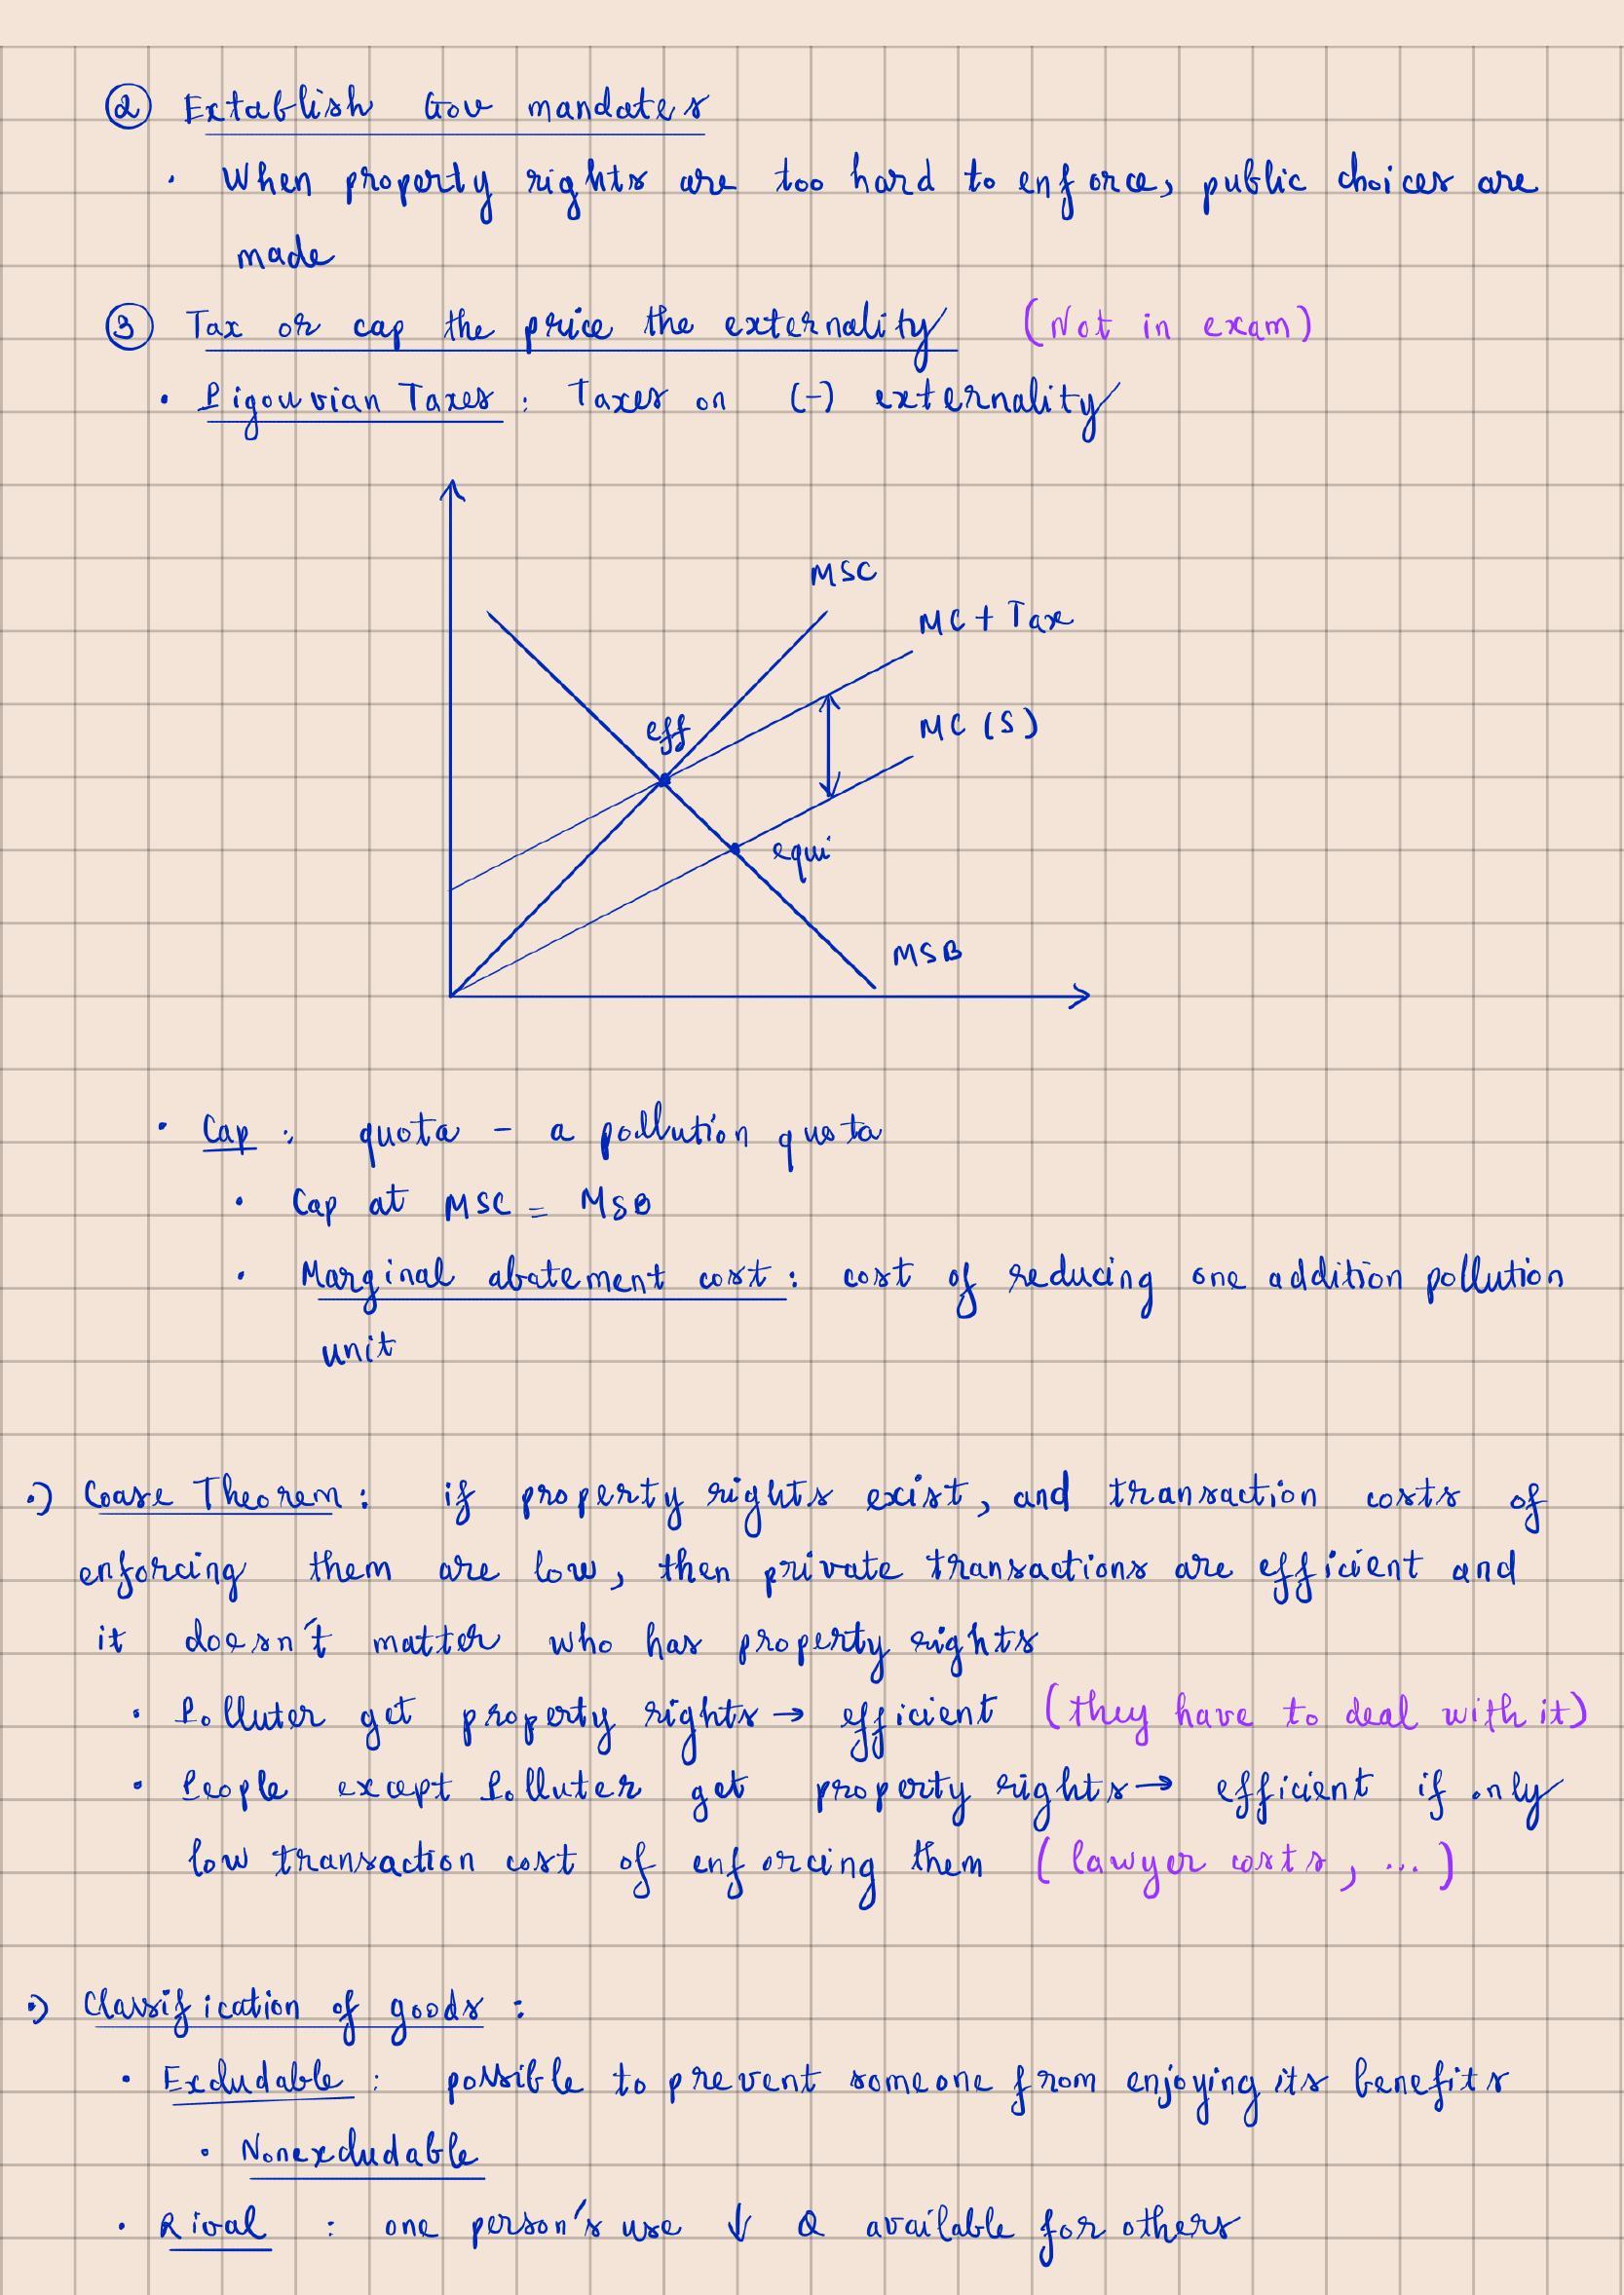 ② Extablish Gov mandates
· When property rights are too hard to enforce, public choices are
made
③ Tax or cap the price the externality (Not in exam)
· Pigouvian Taxes : Taxes on (-) externality
MSC
MC + Tax
eff
MC (S)
equi
MSB
· Cap : quota - a pollution quota
· Cap at MSC = MSB
· Marginal abatement cost : cost of reducing one addition pollution
unit
·) Coase Theorem : if property rights exist, and transaction costs of
enforcing them are low, then private transactions are efficient and
it doesn't matter who has property rights
· Polluter get property rights → efficient (they have to deal with it)
· People except Polluter get property rights → efficient if only
low transaction cost of enforcing them (lawyer costs, ...)
·) Classification of goods :
· Excludable : possible to prevent someone from enjoying its benefits
· Nonexcludable
· Rival : one person's use ↓ Q available for others